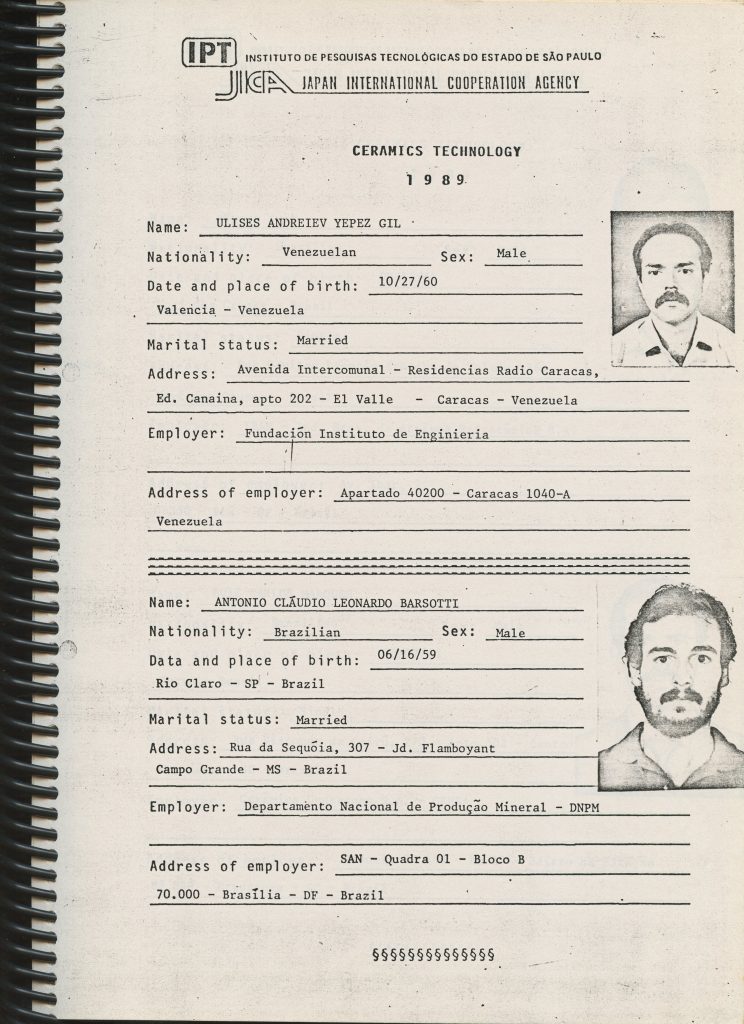 IPT INSTITUTO DE PESQUISAS TECNOLÓGICAS DO ESTADO DE SÃO PAULO
JICA JAPAN INTERNATIONAL COOPERATION AGENCY
CERAMICS TECHNOLOGY
1989
Name: ULISES ANDREIEV YEPEZ GIL
Nationality: Venezuelan Sex: Male
Date and place of birth: 10/27/60
Valencia - Venezuela
Marital status: Married
Address: Avenida Intercomunal - Residencias Radio Caracas,
Ed. Canaina, apto 202 - El Valle - Caracas - Venezuela
Employer: Fundación Instituto de Enginieria
Address of employer: Apartado 40200 - Caracas 1040-A
Venezuela
Name: ANTONIO CLÁUDIO LEONARDO BARSOTTI
Nationality: Brazilian Sex: Male
Data and place of birth: 06/16/59
Rio Claro - SP - Brazil
Marital status: Married
Address: Rua da Sequóia, 307 - Jd. Flamboyant
Campo Grande - MS - Brazil
Employer: Departamento Nacional de Produção Mineral - DNPM
Address of employer: SAN - Quadra 01 - Bloco B
70.000 - Brasília - DF - Brazil
§§§§§§§§§§§§§§